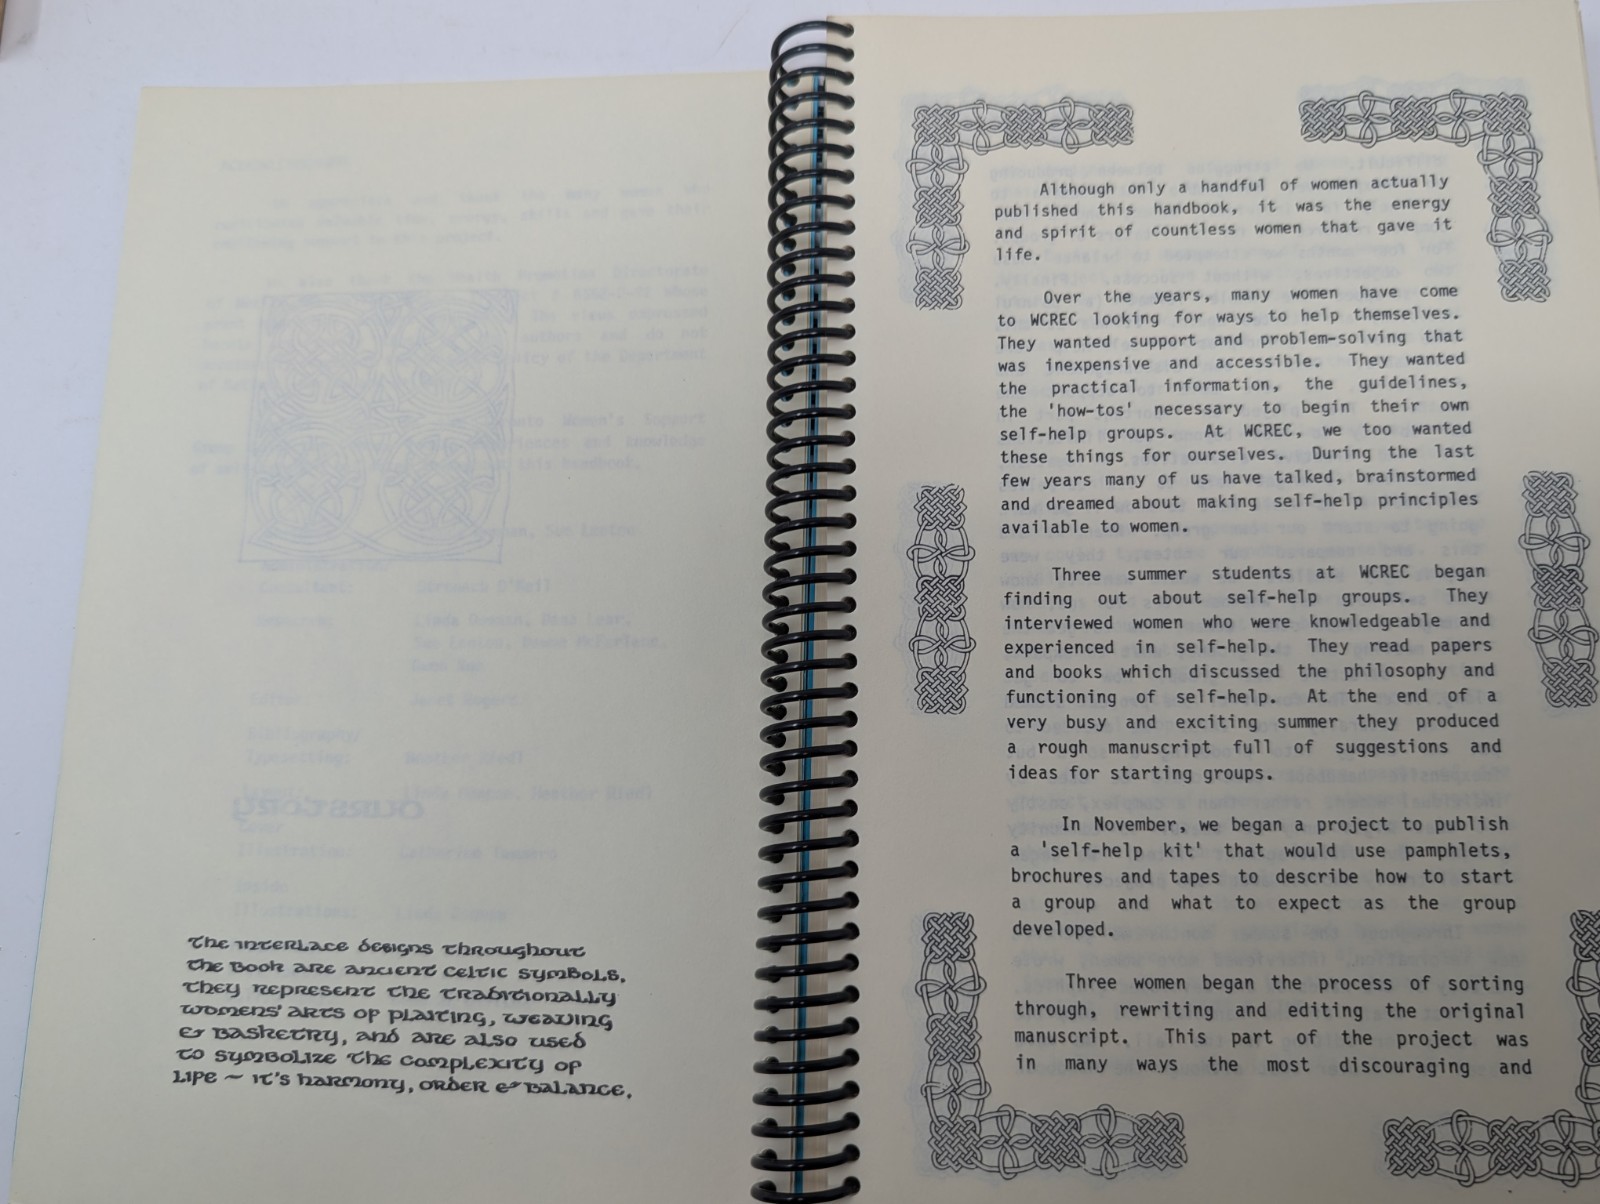 The interlace designs throughout
the book are ancient Celtic symbols.
They represent the traditionally
womens' arts of plaiting, weaving
& basketry, and are also used
to symbolize the complexity of
life ~ it's harmony, order & balance.
Although only a handful of women actually
published this handbook, it was the energy
and spirit of countless women that gave it
life.
Over the years, many women have come
to WCREC looking for ways to help themselves.
They wanted support and problem-solving that
was inexpensive and accessible. They wanted
the practical information, the guidelines,
the 'how-tos' necessary to begin their own
self-help groups. At WCREC, we too wanted
these things for ourselves. During the last
few years many of us have talked, brainstormed
and dreamed about making self-help principles
available to women.
Three summer students at WCREC began
finding out about self-help groups. They
interviewed women who were knowledgeable and
experienced in self-help. They read papers
and books which discussed the philosophy and
functioning of self-help. At the end of a
very busy and exciting summer they produced
a rough manuscript full of suggestions and
ideas for starting groups.
In November, we began a project to publish
a 'self-help kit' that would use pamphlets,
brochures and tapes to describe how to start
a group and what to expect as the group
developed.
Three women began the process of sorting
through, rewriting and editing the original
manuscript. This part of the project was
in many ways the most discouraging and